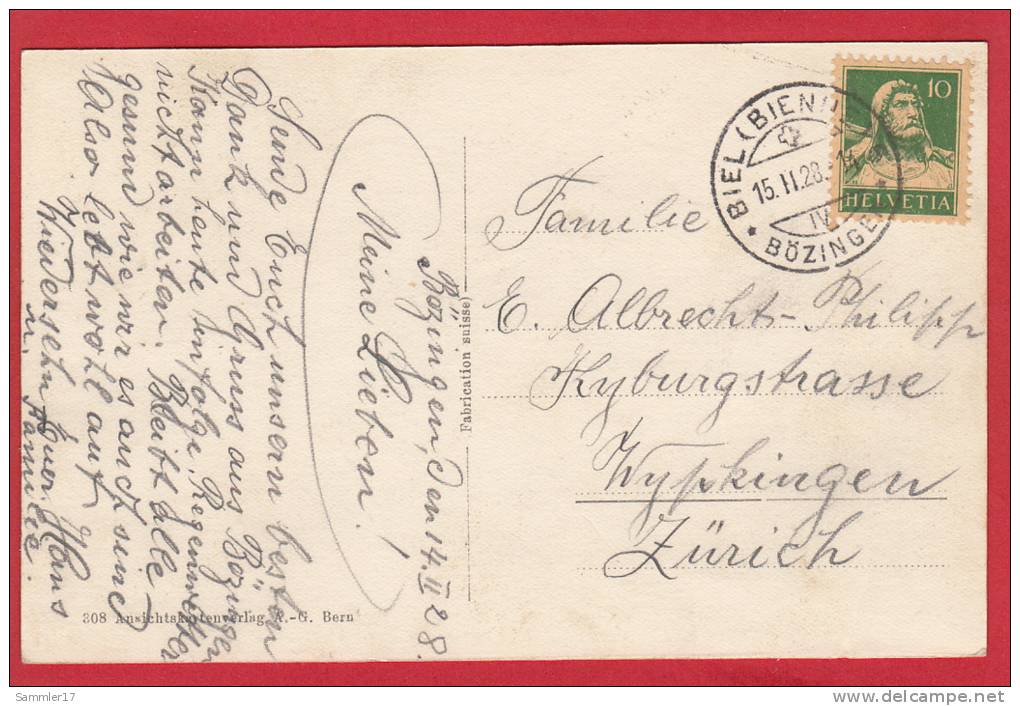 Bözingen, den 14. II 28.
Meine Lieben!
Sende Euch unsern besten
Dank und Gruss aus Bözingen
Kann heute infolge Regenwetter
nicht arbeiten. Bleibt alle
gesund wie wir es auch sind
Also lebt wohl auf
Wiedersehn Euer Hans
u. Familie.
Fabrication suisse)
308 Ansichtskartenverlag A.-G. Bern
BIEL (BIENNE)
15.II.28.
IV
* BÖZINGEN
10
HELVETIA
Familie
E. Albrecht-Philipp
Kyburgstrasse
Wypkingen
Zürich
Sammler17
delcampe.net